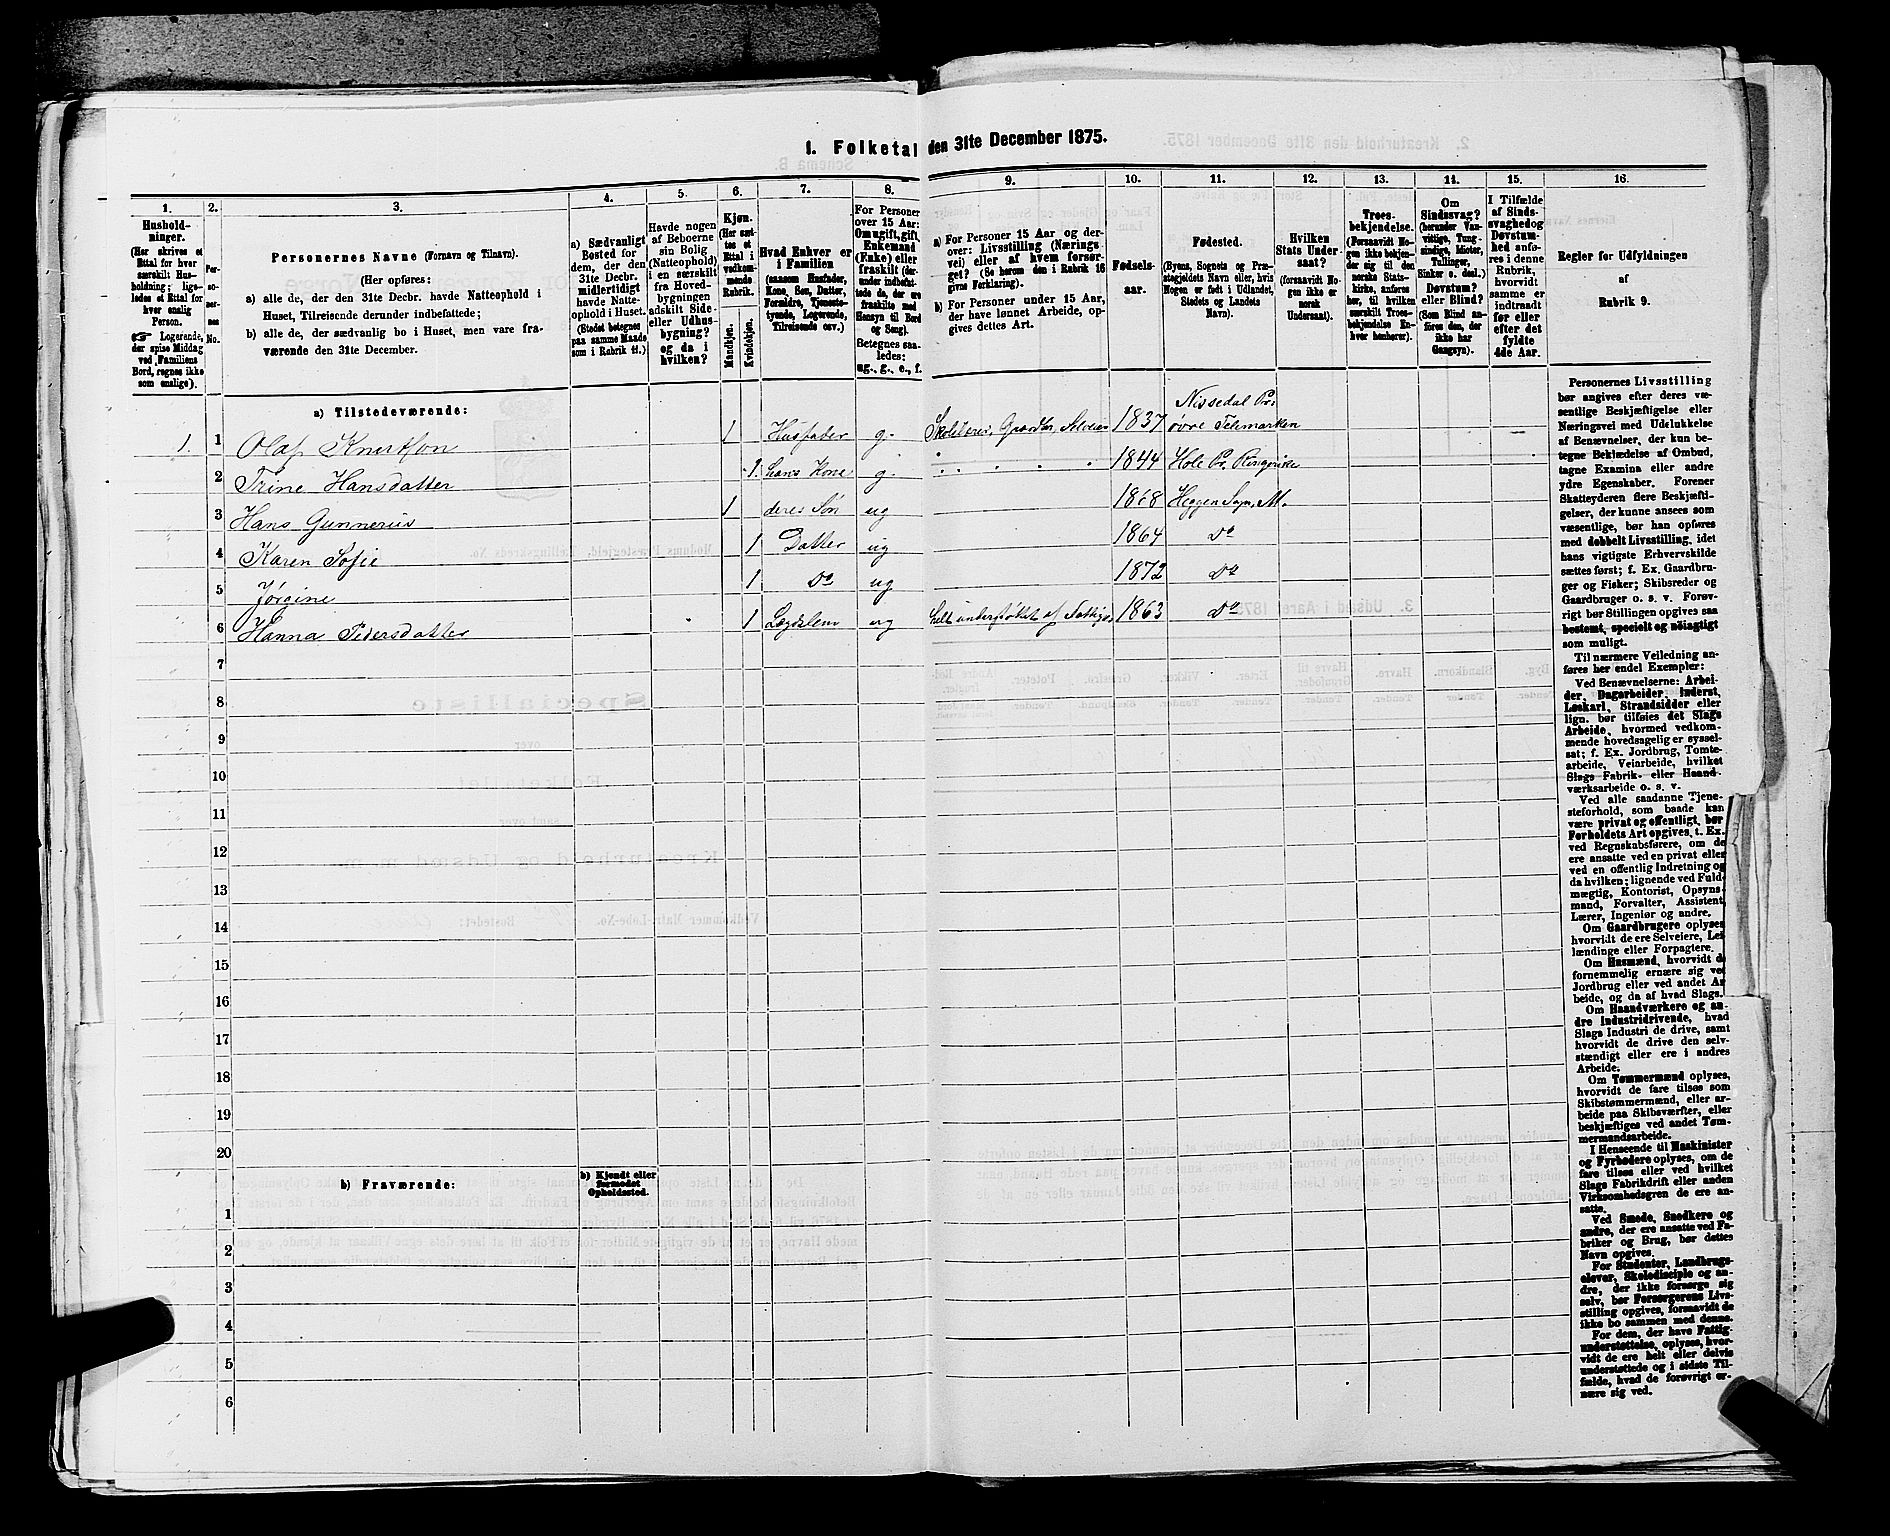 1. Folketal den 31te December 1875.
1. 2. 3. 4. 5. 6. 7. 8. 9. 10. 11. 12. 13. 14. 15. 16.
Husholdninger.
(Her skrives et
Ettal for hver
særskilt Husholdning;
ligeledes et Ettal for
hver enslig
Person.
☞ Logerende,
der spise Middag
ved Familiens
Bord, regnes ikke
som enslige).
Personernes No.
Personernes Navne (Fornavn og Tilnavn).
(Her opføres:
a) alle de, der den 31te Decbr. havde Natteophold i
Huset, Tilreisende derunder indbefattede;
b) alle de, der sædvanlig bo i Huset, men vare fraværende
den 31te December.
a) Sædvanligt
Bosted for
dem, der den
31te Decbr.
midlertidigt
havde Natteophold
i Huset.
(Stedet betegnes
paa samme Maade
som i Rubrik 11.)
Havde nogen
af Beboerne
sin Bolig
(Natteophold)
i en særskilt
fra Hovedbygningen
adskilt Side-
eller Udhusbygning?
og da i
hvilken?
Kjøn.
(Her sættes
et Ettal i
vedkommende
Rubrik.
Mandkjøn. Kvindekjøn.
Hvad Enhver er
i Familien
(saasom Husfader,
Kone, Søn, Datter,
Forældre, Tjenestetyende,
Logerende,
Tilreisende osv.)
For Personer
over 15 Aar:
Om ugift, gift,
Enkemand
(Enke) eller
fraskilt (derunder
indbefattede
de, der ere
fraskilte med
Hensyn til Bord
og Seng).
Betegnes saaledes:
ug., g., e., f.
a) For Personer 15 Aar og derover:
Livsstilling (Næringsvei)
eller af hvem forsørget?
(Se herom den i Rubrik 16
givne Forklaring).
b) For Personer under 15 Aar,
der have lønnet Arbeide, opgives
dettes Art.
Fødselsaar.
Fødested.
(Byens, Sognets og Præstegjeldets
Navn, eller, hvis
Nogen er født i Udlandet,
Stedets og Landets
Navn).
Hvilken
Stats Undersaat?
(forsaavidt Nogen
ikke er
norsk
Undersaat).
Troesbekjendelse.
(Forsaavidt Nogen
ikke bekjender
sig til den
norske Statskirke,
anføres
her, til hvilken
særskilt Troesbekjendelse
Enhver
henhører).
Om
Sindssvag?
(herunder Vanvittige,
Tungsindige,
Idioter,
Tullinger,
Sinker o. desl.)
Døvstum?
eller Blind?
(Som Blind anføres
den, der
ikke har
Gangsyn).
I Tilfælde
af Sindssvaghed
og
Døvstumhed
anføres
i denne
Rubrik,
hvorvidt
samme er
indtraadt
før eller
efter det
fyldte
4de Aar.
Regler for Udfyldningen
af
Rubrik 9.
a) Tilstedeværende:
1. 1 Olaf Knutson 1 Husfader g. Skolelærer, Gaardbr, Selveier 1837 Nissedal Pr: øvre Telemarken
2 Trine Hansdatter 1. hans Kone g. 1844 Hole Pr. Ringerike
3 Hans Gunnerius 1 deres Søn ug 1868 Heggen Sogn, M.
4 Karen Sofie 1 Datter ug 1864 Do
5 Jørgine 1 Do ug 1872 Do
6 Hanna Pedersdatter 1 Lægdslem ug helt understøttet af 1863 Do
7
8
9
10
11
12
13
14
15
16
17
18
19
20
b) Fraværende:
b) Kjendt eller
formodet
Opholdssted.
1
2
3
4
5
6
Personernes Livsstilling
bør angives efter deres væsentlige
Beskjæftigelse eller
Næringsvei med Udelukkelse
af Benævnelser, der kun betegne
Beklædelse af Ombud,
tagne Examina eller andre
ydre Egenskaber. Forener
Skatteyderen flere Beskjæftigelser,
der kunne ansees som
væsentlige, bør han opføres
med dobbelt Livsstilling, idet
hans vigtigste Erhvervskilde
sættes først; f. Ex. Gaardbruger
og Fisker; Skibsreder og
Gaardbruger o. s. v. Forøvrigt
bør Stillingen opgives saa
bestemt, specielt og nøiagtigt
som muligt.
Til nærmere Veiledning anføres
her endel Exempler:
Ved Benævnelserne: Arbeider,
Dagarbeider, Inderst,
Løskarl, Strandsidder eller
lign. bør tilføies det Slags
Arbeide, hvormed vedkommende
hovedsagelig er sysselsat;
f. Ex. Jordbrug, Tomtearbeide,
Veiarbeide, hvilket
Slags Fabrik- eller Haandværksarbeide
o. s. v.
Ved alle saadanne Tjenesteforhold,
som baade kan
være privat og offentligt, bør
Forholdets Art opgives, t. Ex.
ved Regnskabsførere, om de
ere ansatte ved en privat eller
ved en offentlig Indretning og
da hvilken; lignende ved Fuldmægtig,
Kontorist, Opsynsmand,
Forvalter, Assistent,
Lærer, Ingeniør og andre.
Om Gaardbrugere oplyses
hvorvidt de ere Selveiere, Leilændinge
eller Forpagtere.
Om Husmænd, hvorvidt de
fornemmelig ernære sig ved
Jordbrug eller ved andet Arbeide,
og da af hvad Slags.
Om Haandværkere og andre
Industridrivende, hvad
Slags Industri de drive, samt
hvorvidt de drive den selvstændigt
eller ere i andres
Arbeide.
Om Tømmermænd oplyses,
hvorvidt de fare tilsøs som
Skibstømmermænd, eller arbeide
paa Skibsværfter, eller
beskjæftiges ved andet Tømmermandsarbeide.
I Henseende til Maskinister
og Fyrbødere oplyses, om de
fare tilsøs eller ved hvilket
Slags Fabrikdrift eller anden
Virksomhedsgren de ere ansatte.
Ved Smede, Snedkere og
andre, der ere ansatte ved Fabriker
og Brug, bør dettes
Navn opgives.
For Studenter, Landbrugselever,
Skoledisciple og andre,
der ikke forsørge sig
selv, bør Forsørgerens Livsstilling
opgives, forsaavidt de
ikke bo sammen med denne.
For dem, der have Fattigunderstøttelse,
oplyses, hvorvidt
de ere helt eller delvis
understøttede og i sidste Tilfælde,
hvad de forøvrigt ernære
sig ved.